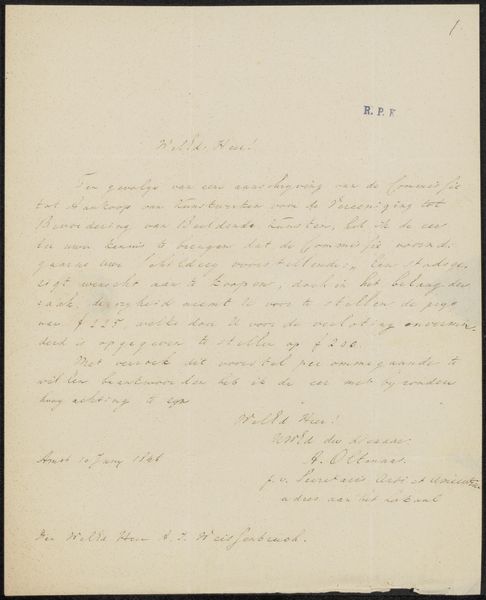 1
R. P. K
WelEd. Heer!
Ten gevolge van eene aanschrijving van de Commissie
tot Aankoop van Kunstwerken voor de Vereeniging tot
Bevordering van Beeldende Kunsten, heb ik de eer
te uwer kennis te brengen dat de Commissie
uwe Schilderij voorstellende, Een stadsge-
zigt wenscht aan te koopen, doch in het belang der
zaak de vrijheid neemt U voor te stellen de prijs
van ƒ 225, welke door U voor de verloting
is opgegeven te stellen op ƒ 200.
Met verzoek dit voorstel per ommegaande te
willen beantwoorden heb ik de eer met bijzondere
hoogachting te zijn
WelEd Heer!
UWEd dw dienaar
A. Oltmans
Secretaris Arti et Amicitiae
adres aan het Lokaal
Amst 10 Juny
Den WelEd Heer A. J. Weissenbruch.